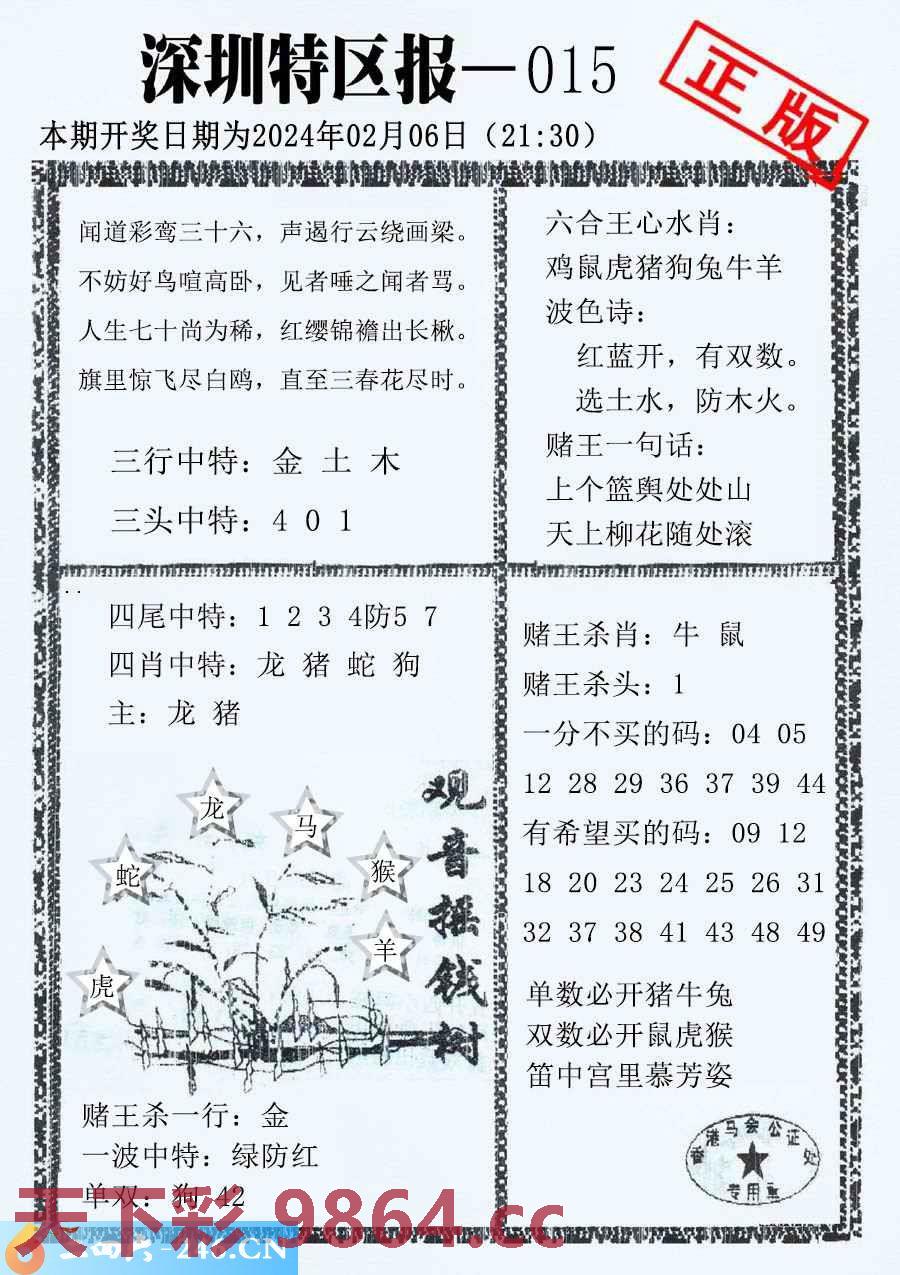 深圳特区报—015
正版
本期开奖日期为2024年02月06日（21:30）
闻道彩鸾三十六，声遏行云绕画梁。
不妨好鸟喧高卧，见者唾之闻者骂。
人生七十尚为稀，红缨锦襜出长楸。
旗里惊飞尽白鸥，直至三春花尽时。
三行中特：金 土 木
三头中特：4 0 1
六合王心水肖：
鸡鼠虎猪狗兔牛羊
波色诗：
红蓝开，有双数。
选土水，防木火。
赌王一句话：
上个篮舆处处山
天上柳花随处滚
四尾中特：1 2 3 4防5 7
四肖中特：龙 猪 蛇 狗
主：龙 猪
龙
马
蛇
猴
羊
虎
观音摇钱树
赌王杀一行：金
一波中特：绿防红
单双：狗 42
赌王杀肖：牛 鼠
赌王杀头：1
一分不买的码：04 05
12 28 29 36 37 39 44
有希望买的码：09 12
18 20 23 24 25 26 31
32 37 38 41 43 48 49
单数必开猪牛兔
双数必开鼠虎猴
笛中宫里慕芳姿
香港马会公证处
专用章
天下彩 9864.cc